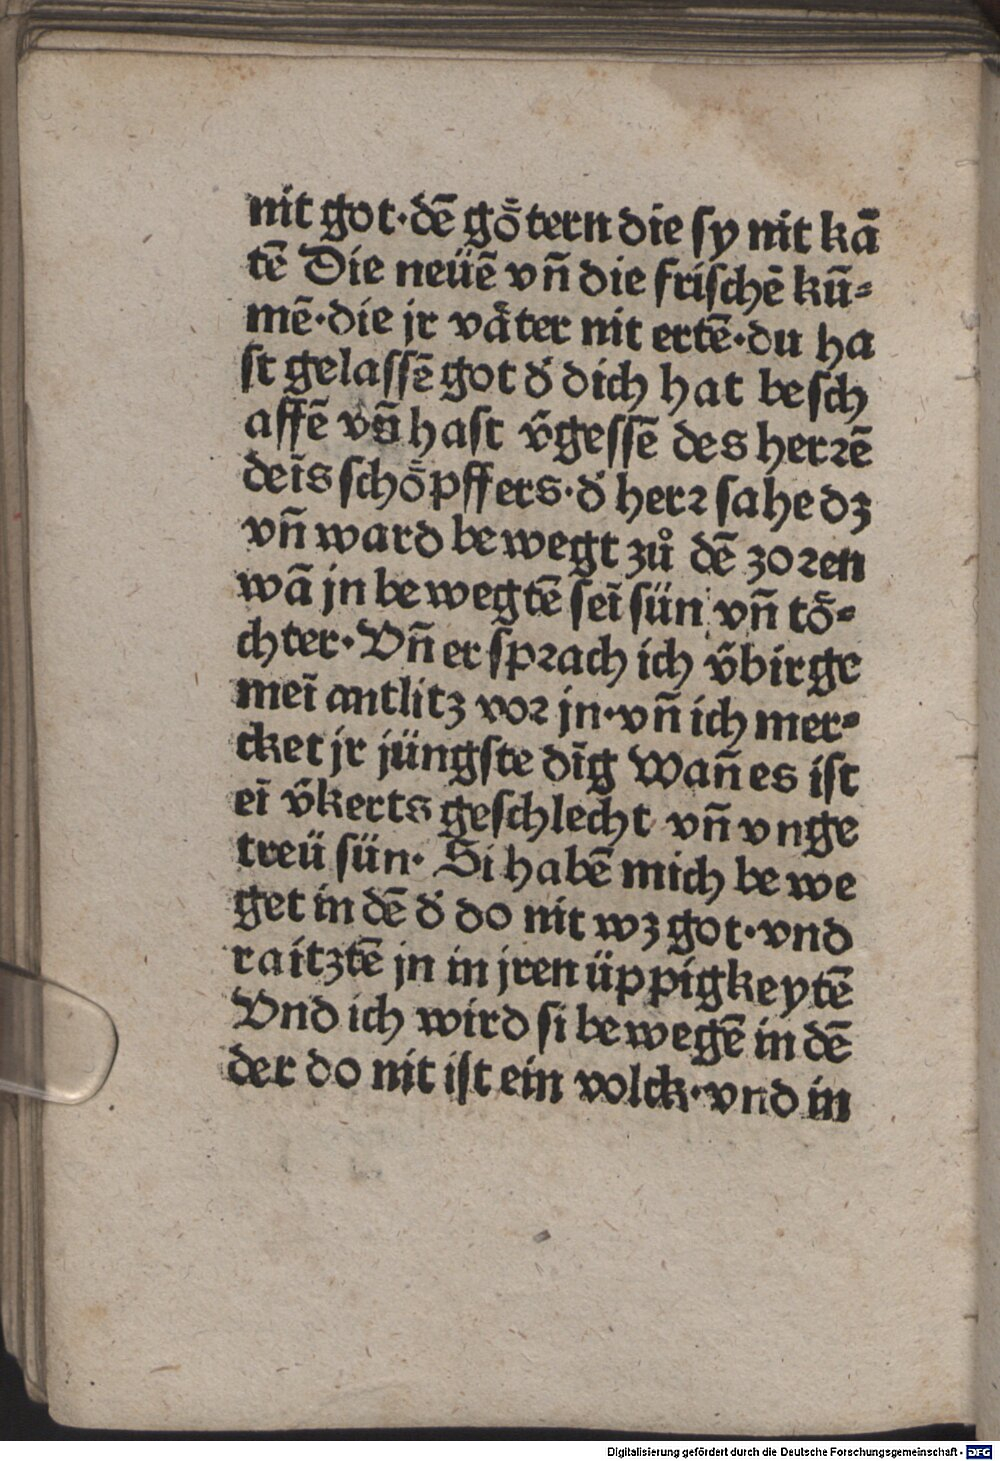 nit got·dē goͤtern die sy nit kā
tē Die neüē vn̄ die frischē kū⸗
mē·die jr vaͤter nit ertē·du ha
st gelassē got d̓ dich hat besch
affē vn̄ hast v̄gessē des herꝛē
deīs schoͤpffers·d̓ herꝛ sahe dz
vn̄ ward bewegt zuͦ dē zoꝛen
wā jn bewegtē seī sün vn̄ toͤ⸗
chter·Vn̄ er spꝛach ich v̄birge
meī antlitz voꝛ jn·vn̄ ich mer⸗
cket jr jüngste dīg Wan̄ es ist
eī v̄kerts geschlecht vn̄ vnge
treü sün· Si habē mich bewe
get in dē d̓ do nit wz got·vnd
raitztē jn in jren üppigkeytē
Vnd ich wird si bewegē in dē
der do nit ist ein volck·vnd in
Digitalisierung gefördert durch die Deutsche Forschungsgemeinschaft - DFG